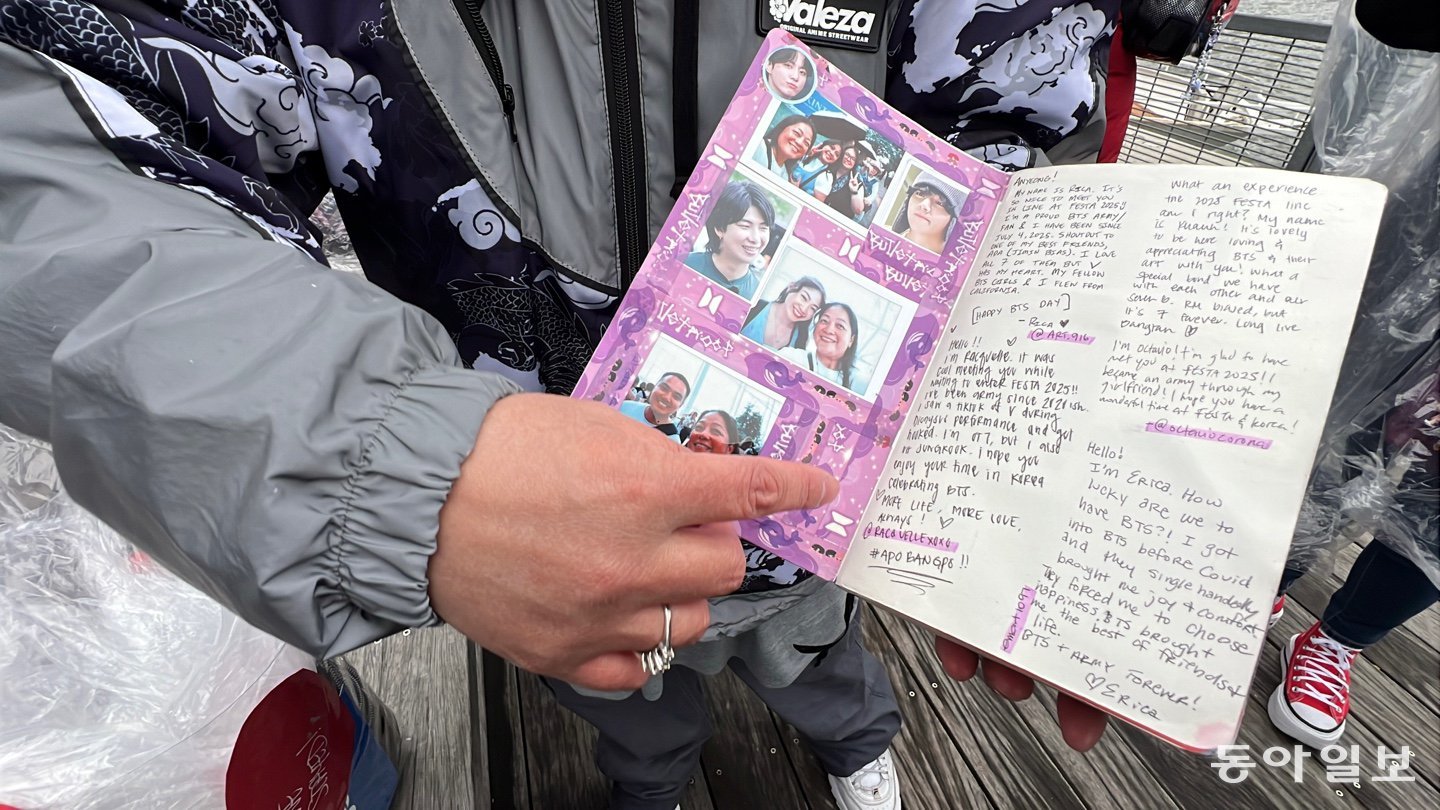 Valeza
ORIGINAL ANIME STREETWEAR
ANYEONG!
MY NAME IS RICA. IT'S
SO NICE TO MEET YOU
IN LINE AT FESTA 2025!
I'M A PROUD BTS ARMY/
FAN & I HAVE BEEN SINCE
JULY 4, 2025. SHOUTOUT TO
ONE OF MY BEST FRIENDS,
ADA (JIMIN BIAS). I LOVE
ALL 7 OF THEM BUT V
HAS MY HEART. MY FELLOW
BTS GIRLS & I FLEW FROM
CALIFORNIA.
[HAPPY BTS DAY]
- RICA ♥
@ART.916
Hello!! ♡
I'm Racquelle. It was
cool meeting you while
waiting to enter FESTA 2025!!
I've been army since 2020ish.
I saw a tiktok of V during
Dionysus performance and got
hooked. I'm OT7, but I also
Jungkook. I hope you
enjoy your time in Korea
celebrating BTS.
♡ MORE LIFE, MORE LOVE,
ALWAYS! ♡
@RACQUELLEXOXO
#APOBANGPO!!
What an experience
the 2025 FESTA line
am I right? My name
is It's lovely
to be here loving &
appreciating BTS & their
art with you! What a
special bond we have
with each other and our
seven. RM biased, but
it's 7 forever. Long live
Bangtan ♡
I'm Octavio! I'm glad to have
met you at FESTA 2025!!
became an army through my
girlfriend! I hope you have a
wonderful time at FESTA & Korea!
- @octaviocorona
Hello!
I'm Erica. How
lucky are we to
have BTS?! I got
into BTS before Covid
and they single handedly
brought me joy & comfort
They forced me to choose
happiness & BTS brought
me the best of friends &
life.
BTS + ARMY FOREVER!
♡ Erica
동아일보